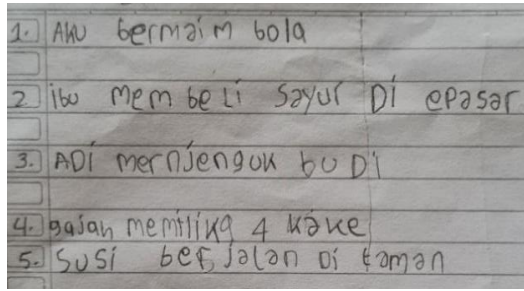 1. AkU bermaim bola
2 ibu mem beLi Sayur Di epasar
3. ADi mernjenguk buDi
4. gajah memiliky 4 kake
5. SUSi berjalan Di taman